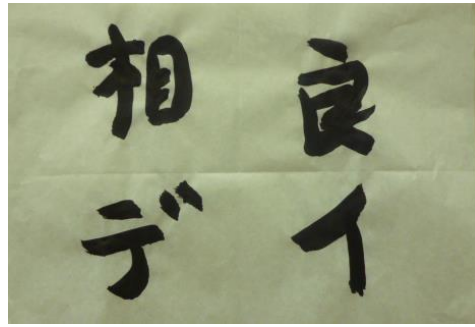 良イ
相デ